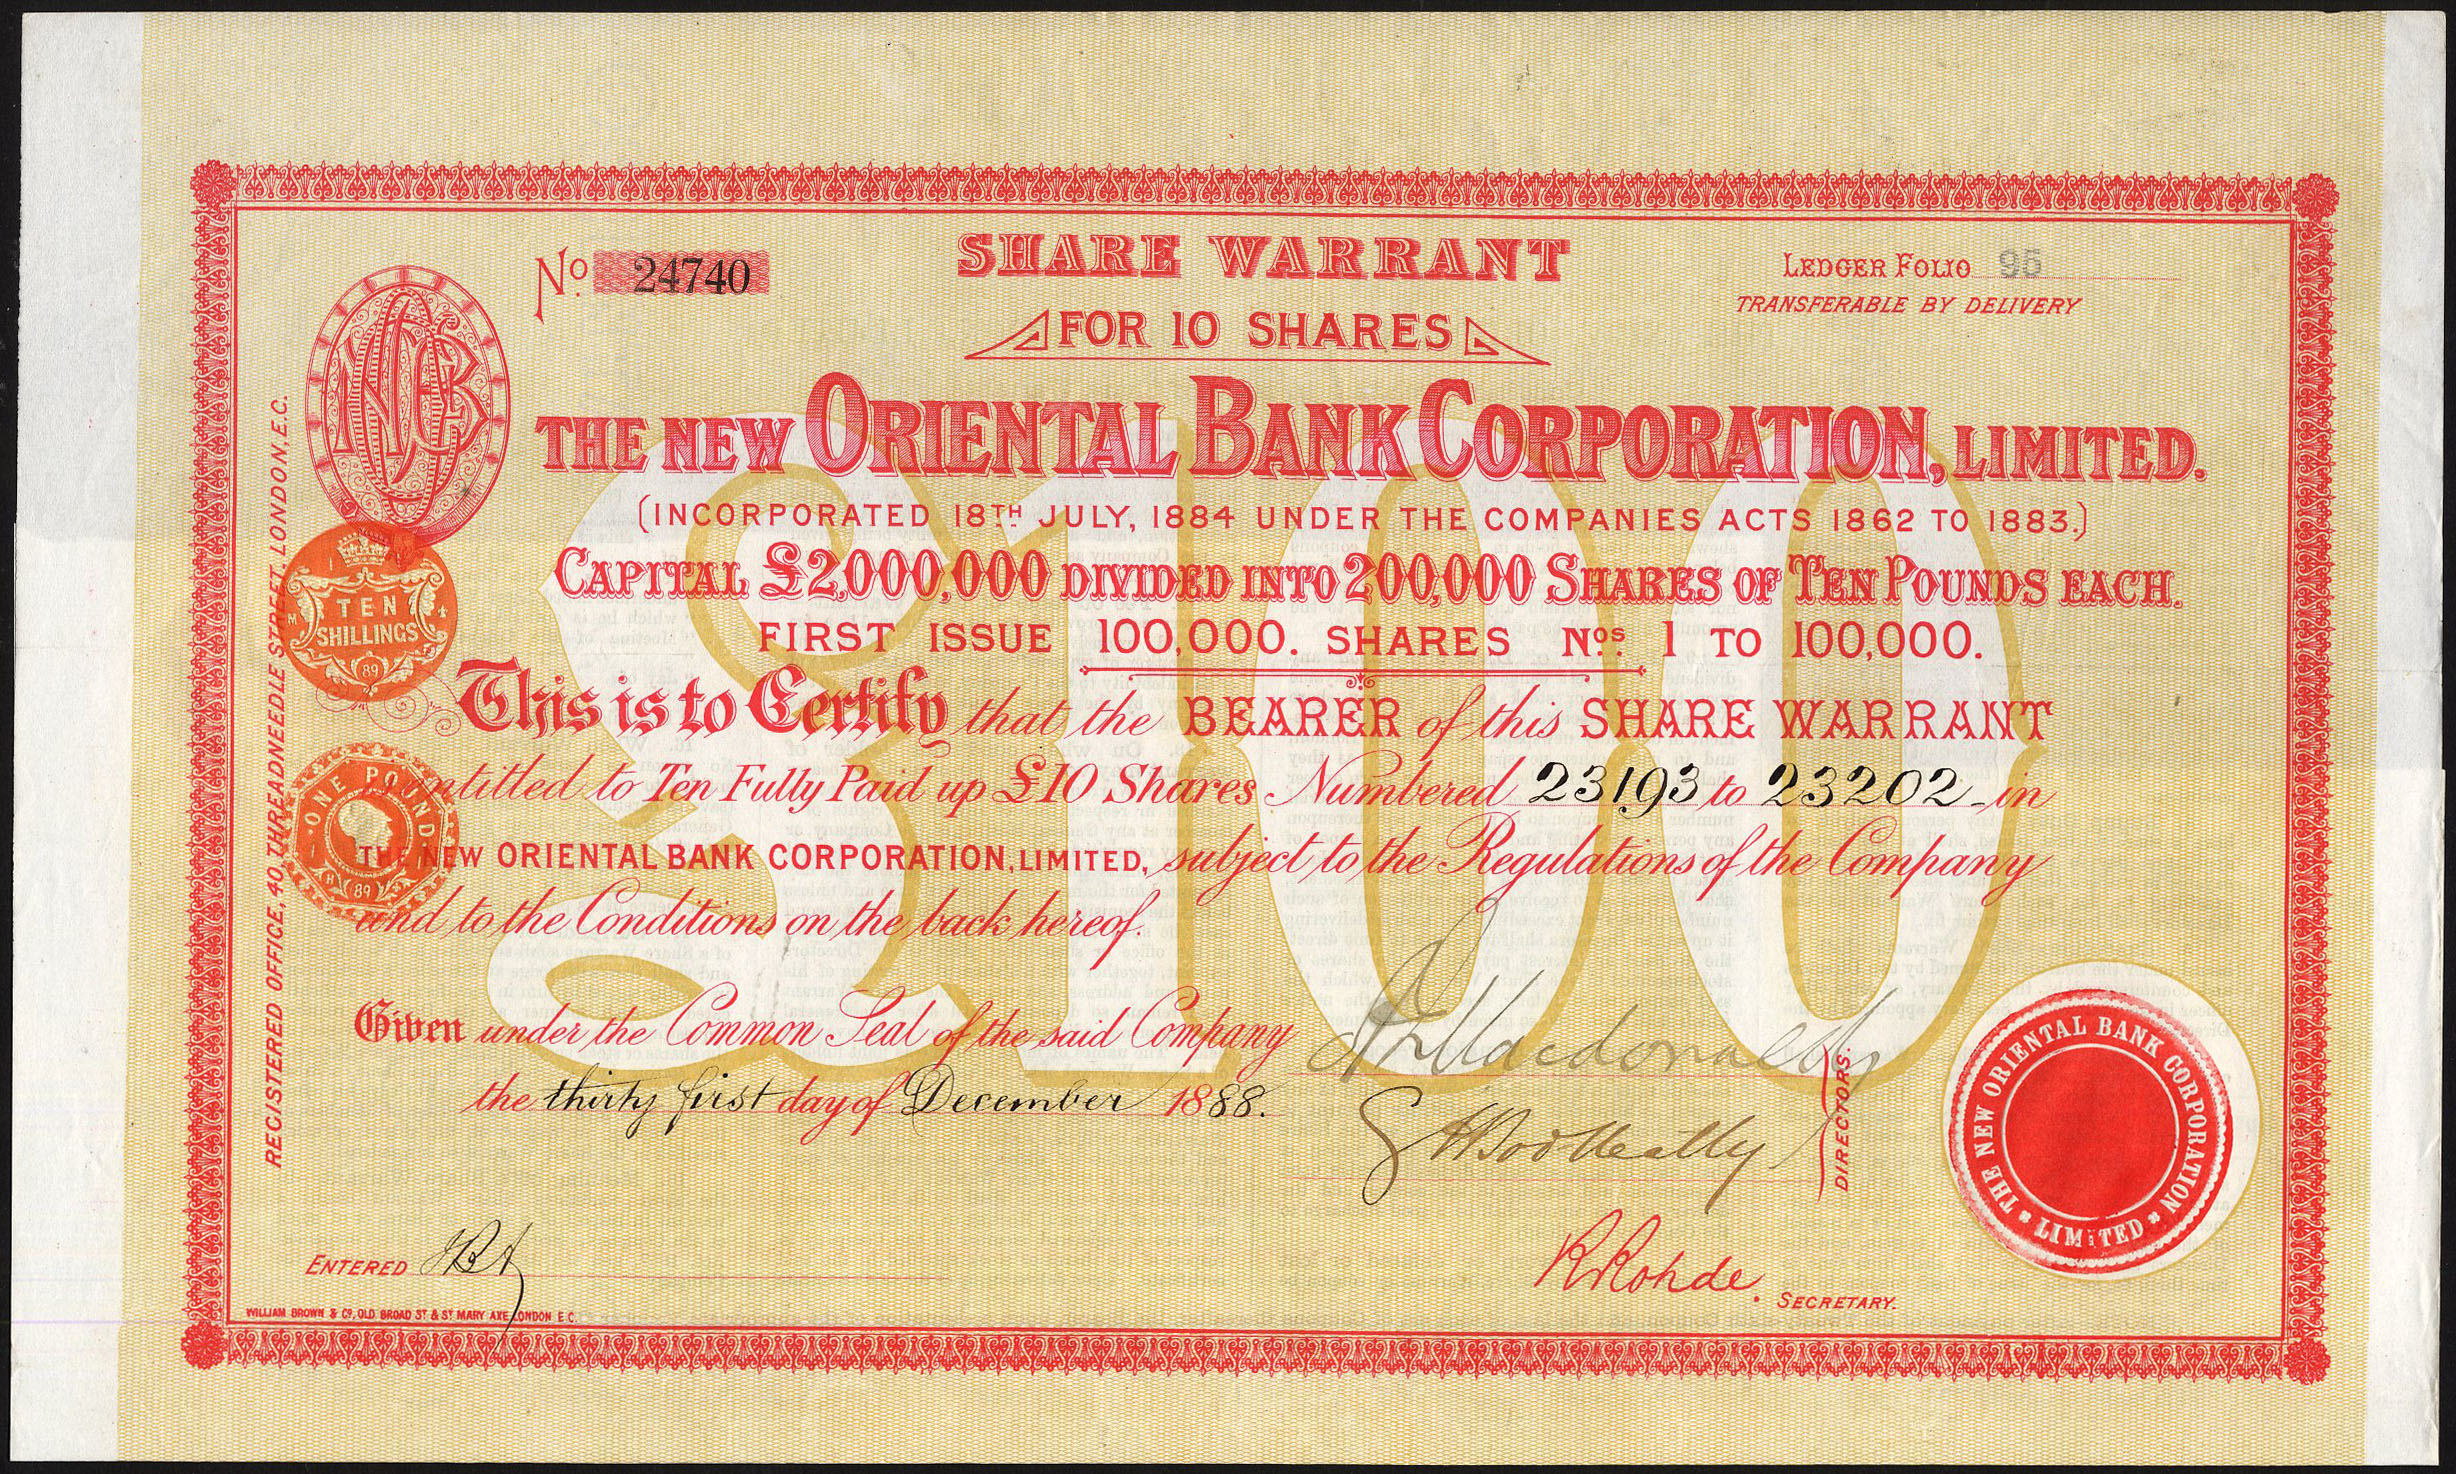 No. 24740
SHARE WARRANT
FOR 10 SHARES
LEDGER FOLIO 95
TRANSFERABLE BY DELIVERY
THE NEW ORIENTAL BANK CORPORATION, LIMITED.
(INCORPORATED 18TH JULY, 1884 UNDER THE COMPANIES ACTS 1862 TO 1883.)
CAPITAL £2,000,000 DIVIDED INTO 200,000 SHARES OF TEN POUNDS EACH.
FIRST ISSUE 100,000. SHARES Nos. 1 TO 100,000.
This is to Certify that the BEARER of this SHARE WARRANT
is entitled to Ten Fully Paid up £10 Shares Numbered 23193 to 23202 in
THE NEW ORIENTAL BANK CORPORATION, LIMITED, subject to the Regulations of the Company
and to the Conditions on the back hereof.
Given under the Common Seal of the said Company
the thirty first day of December 1888.
£100
Macdonald
DIRECTORS.
R Rohde.
SECRETARY.
ENTERED
WILLIAM BROWN & Co, OLD BROAD ST & ST MARY AXE LONDON E.C.
REGISTERED OFFICE, 40, THREADNEEDLE STREET LONDON, E.C.
TEN
SHILLINGS
89
ONE POUND
89
THE NEW ORIENTAL BANK CORPORATION
LIMITED